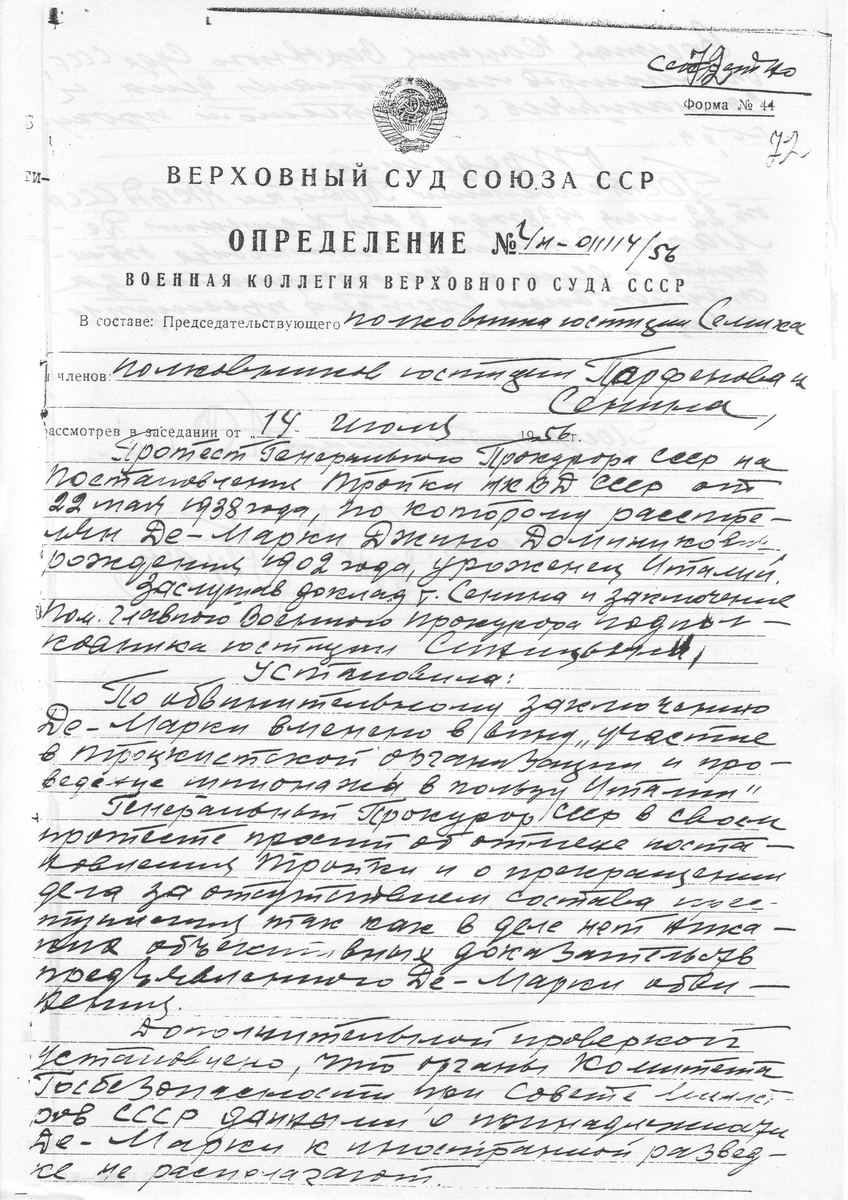 Форма № 44
72
ВЕРХОВНЫЙ СУД СОЮЗА ССР
ОПРЕДЕЛЕНИЕ № 4н-011114/56
ВОЕННАЯ КОЛЛЕГИЯ ВЕРХОВНОГО СУДА СССР
В составе: Председательствующего полковника юстиции Семика
и членов: полковников юстиции Парфенова и
Сенина,
рассмотрев в заседании от „14" июля 1956 г.
Протест Генерального Прокурора СССР на
постановление Тройки НКВД СССР от
22 мая 1938 года, по которому расстре-
лян Де-Марки Джино Доминикович
рождения 1902 года, уроженец Италии.
Заслушав доклад т. Сенина и заключение
Пом. Главного Военного Прокурора подпол-
ковника юстиции
установила:
По обвинительному заключению
Де-Марки вменено в вину „участие
в троцкистской организации и про-
ведение шпионажа в пользу Италии"
Генеральный Прокурор СССР в своем
протесте просит об отмене поста-
новления Тройки и о прекращении
дела за отсутствием состава прес-
тупления так как в деле нет ника-
ких объективных доказательств
предъявленного Де-Марки обви-
нения.
Дополнительной проверкой
установлено, что органы Комитета
Госбезопасности при Совете Минист-
ров СССР данными о принадлежности
Де-Марки к иностранной развед-
ке не располагают.